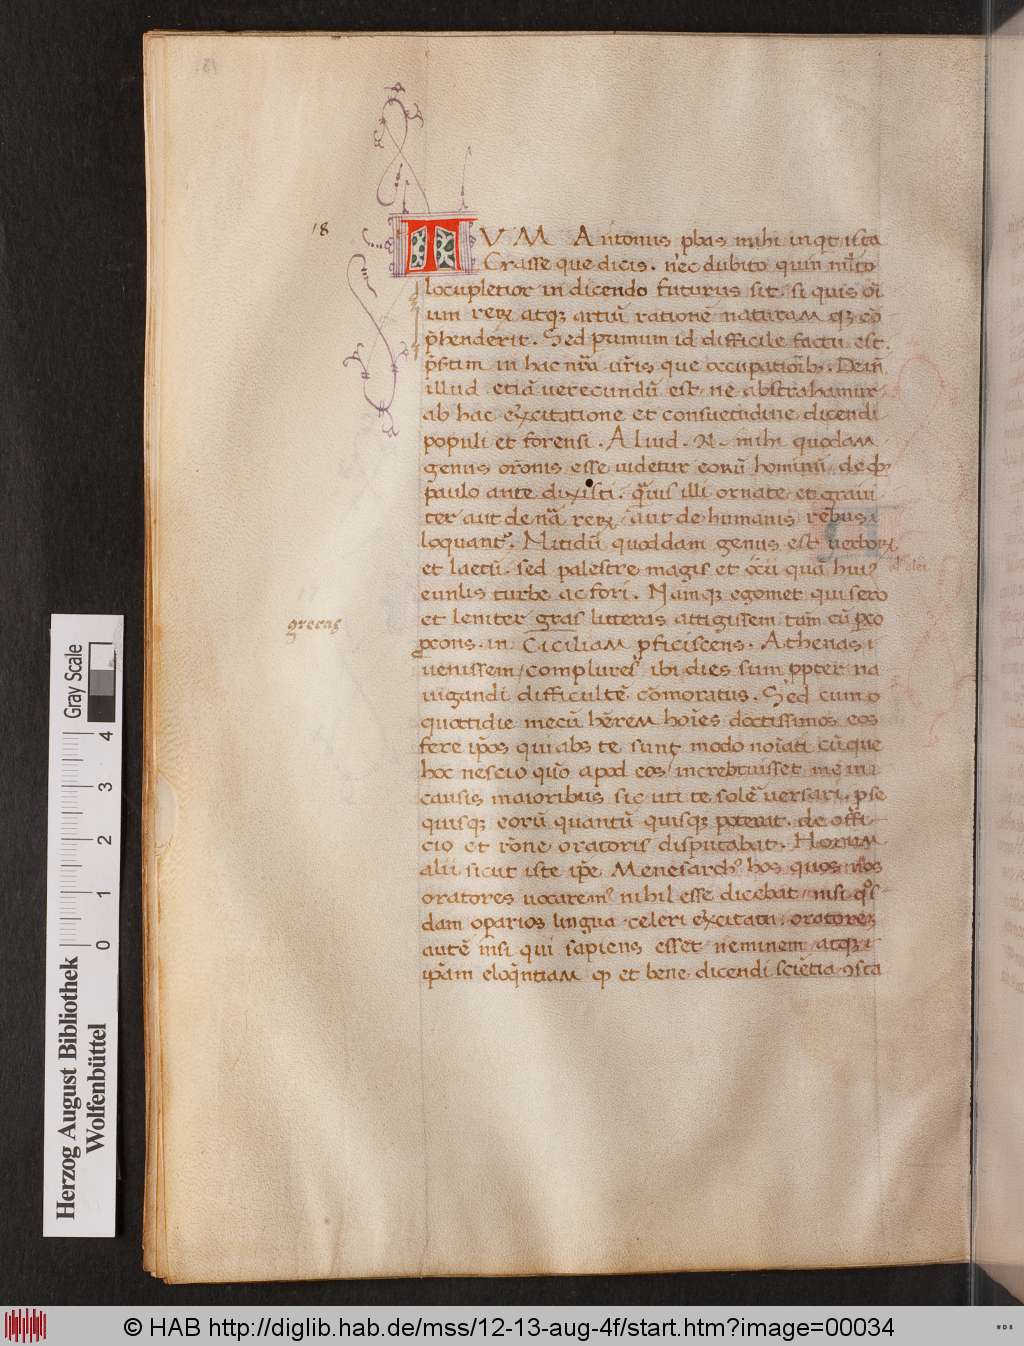 18
TVM Antonius ꝓbas mihi inqt ista
Crasse que dicis. nec dubito quin ml̄to
locupletior in dicendo futurus sit. si quis oī
um reꝝ atqꝫ artiū rationē naturam qꝫ cō
p̄henderit. Sed primum id difficile factu est.
p̄sertim in hac nr̄a ur̄is que occupatioīb. Dein̄
illud etiā uerecundū est ne abstrahamur
ab hac exercitatione et consuetudine dicendi
populi et forensi. Aliud. N. mihi quodam
genus orōnis esse uidetur eorū hominū. de
paulo ante dixisti. quis illi ornate et graui
ter aut de nā reꝝ aut de humanis rebus
loquant᷑. Nitidū quoddam genus est uerboꝝ
et laetū. sed palestre magis et
eiuilis turbe ac fori. Namqꝫ egomet qui sero
et leniter gras litteras attigissem tam cū pro
grecas
ꝓcons. in Ciciliam ꝓficiscens. Athenas
uenissem complures ibi dies sum ꝓpter na
uigandi difficultē cōmoratus. Sed cum
quottidie mecū hērem hoīes doctissimos eos
fere ip̄os qui abs te sunt modo noīati cū que
hoc nescio quo apod eos increbruisset me in
causis maioribus sic uti te solē uersari. ꝓ se
quisqꝫ eorū quantū quisqꝫ poterat. de offi
cio et rōne oratoris disputabat. Horum
alii sicut iste ip̄e Menesarch᷒ hos quos nos
oratores uocarem᷒ nihil esse dicebat nisi qꝰs
dam oparios lingua celeri exercitata. oratorem
autē nisi qui sapiens esset neminem atqꝫ
ip̄am eloqn̄tiam et bene dicendi sciētia
Gray Scale
0 1 2 3 4
Herzog August Bibliothek
Wolfenbüttel
© HAB http://diglib.hab.de/mss/12-13-aug-4f/start.htm?image=00034